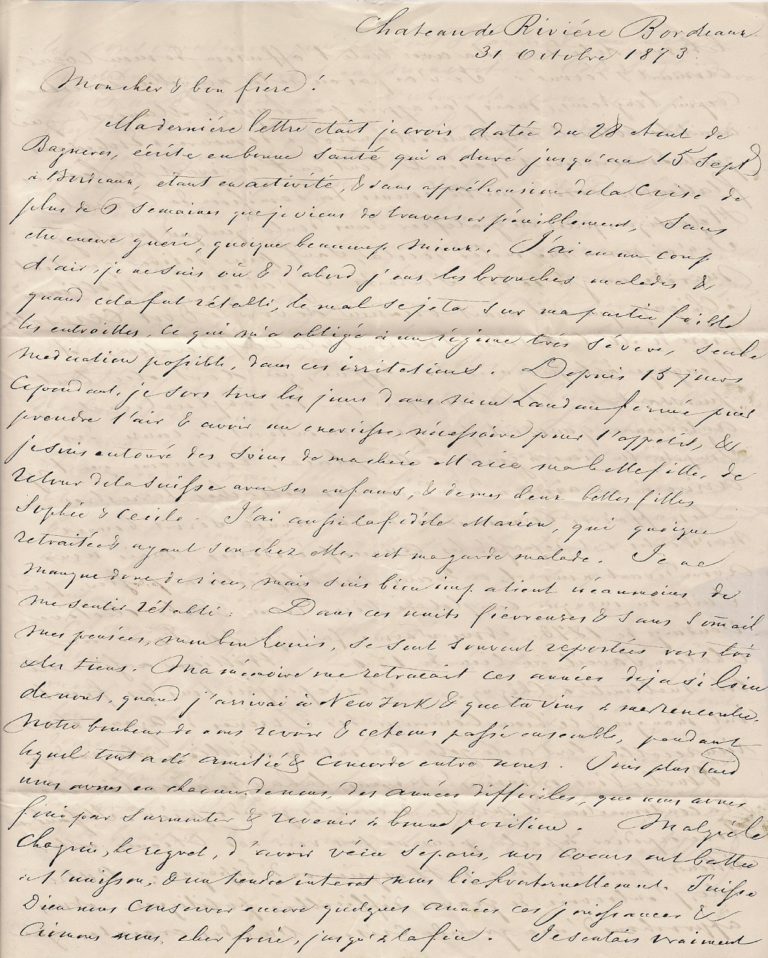 Chateau de Riviére Bordeaux
31 Octobre 1873
Mon cher & bon frére!
Ma derniére lettre était je crois datée du 28 Aout de
Bagneres, écrite en bonne santé qui a duré jusqu'au 15 Sept
à Bordeaux, étant en activité, & sans appréhension de la Crise de
plus de 6 semaines que je viens de traverser péniblement, sans
etre encore guéri, quoique beaucoup mieux. J'ai eu un coup
d'air, je ne sais où & d'abord j'eus les bronches malades &
quand cela fut rétabli, le mal se jeta sur ma partie faible
les entrailles, ce qui m'a obligé à un régime trés sévere, seule
médication possible, dans ces irritations. Depuis 15 jours
cependant, je sors tous les jours dans mon Landau fermé pour
prendre l'air & avoir un exercise, nécessaire pour l'appetit, &
je suis entouré des soins de ma chére Marie ma belle fille, de
retour de la Suisse avec ses enfans, & de mes deux belles filles
Sophie & Cecile. J'ai aussi la fidéle Marion, qui quoique
retraitée & ayant son chez elle, est ma garde malade. Je ne
manque donc de rien, mais suis bien impatient néanmoins de
me sentir rétabli. Dans ces nuits fiévreuses & sans somail
mes pensées, mon bon Louis, se sont souvent reportées vers toi
& les tiens. Ma mémoire me retracait ces années deja si loin
de nous, quand j'arrivai à New York & que tu vins à ma rencontre,
Notre bonheur de nous revoir & ce tems passé ensemble, pendant
lequel tout a été amitié & concorde entre nous. Puis plus tard
nous avons eu chacun de nous, des années difficiles, que nous avons
fini par surmonter & revenir à bonne position. Malgré le
chagrin, le regret, d'avoir vécu séparés, nos coeurs ont battu
à l'unisson, & un tendre interet nous lie fraternellement. Puisse
Dieu nous conserver encore quelques années ces jouissances &
aimons nous, cher frére, jusqu'à la fin. Je sentais vraiment